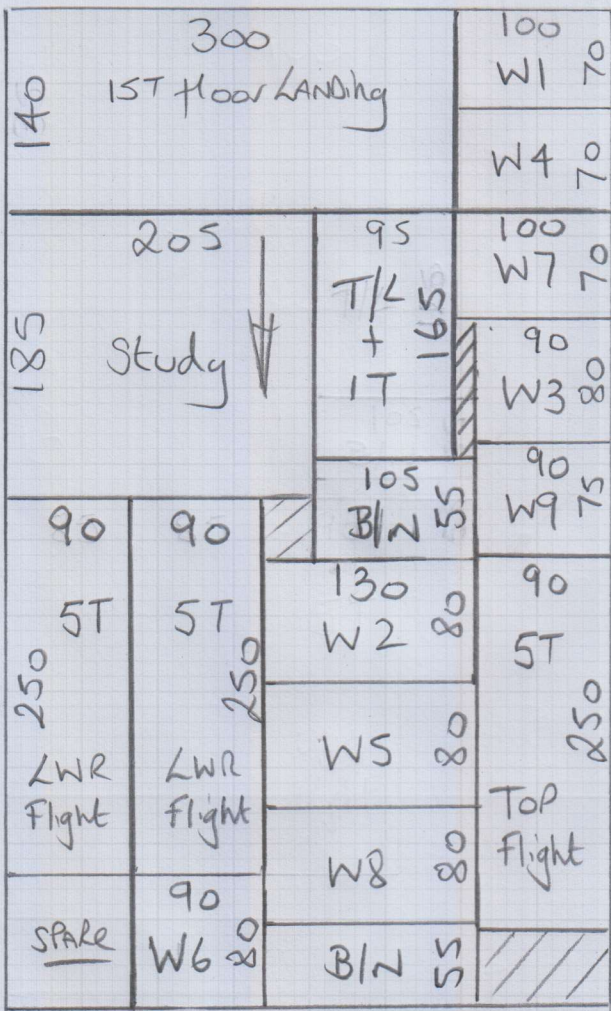 300
1ST floor LANDing
140
100
W1 70
W4 70
205
Study
185
95
T/L
+
1T
165
100
W7 70
90
W3 80
90
W9 75
105
B/N 55
90
5T
250
LWR
Flight
90
5T
250
LWR
Flight
130
W2 80
W5 80
W8 80
B/N 55
90
5T
250
TOP
Flight
SPARE
90
W6 80